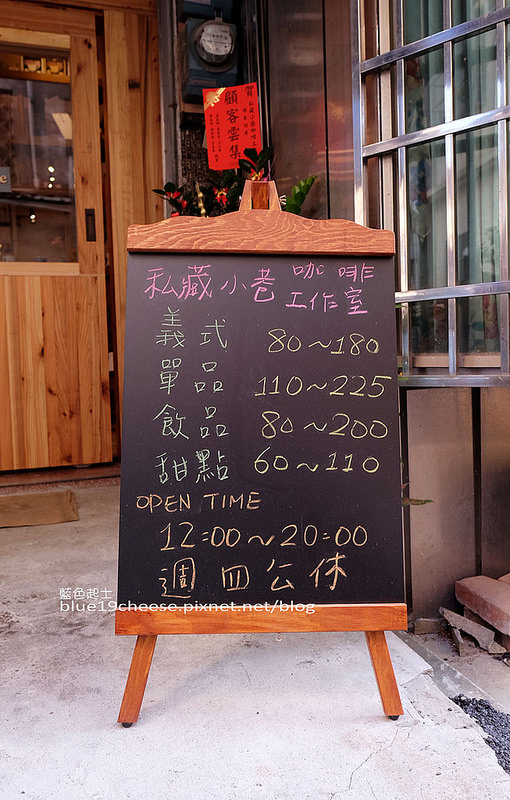 賀
顧客雲集
私藏小巷咖啡工作室
義式 80～180
單品 110～225
飲品 80～200
甜點 60～110
OPEN TIME
12:00～20:00
週四公休
藍色起士
blue19cheese.pixnet.net/blog